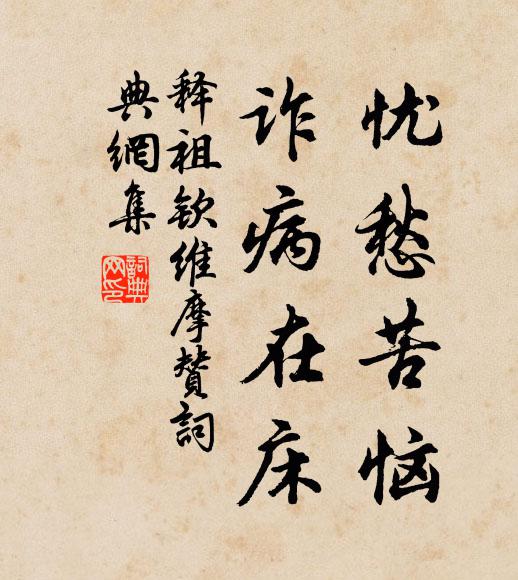 忧愁苦恼
诈病在床
释祖钦维摩赞词
典網集
詞典
网印